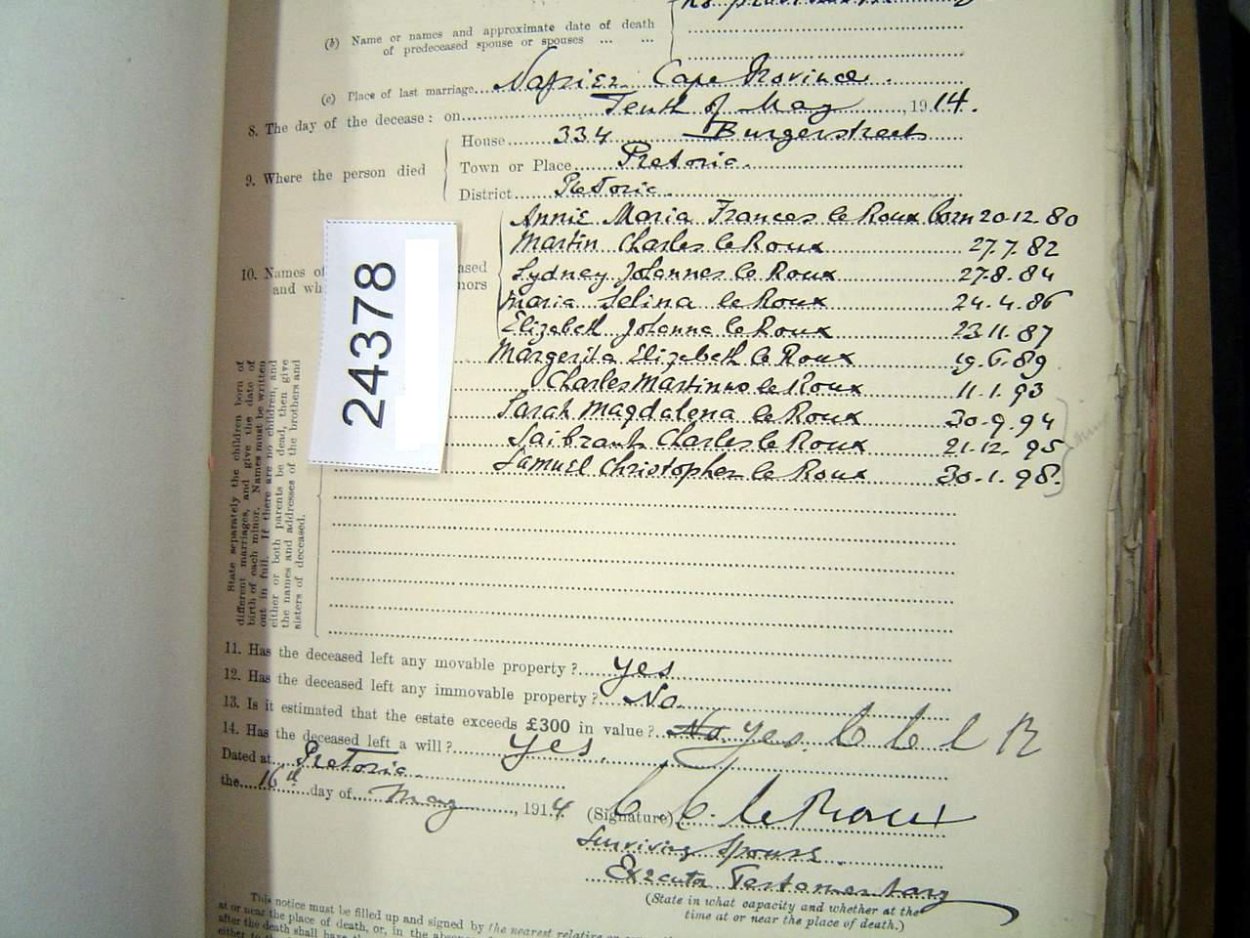 (b) Name or names and approximate date of death
of predeceased spouse or spouses ... ...
(c) Place of last marriage Napier Cape Province.
8. The day of the decease: on Tenth of May, 1914.
9. Where the person died
House 334 Burgerstreet
Town or Place Pretoria.
District Pretoria.
10. Names of ased
and wh nors
Annie Maria Frances le Roux born 20.12.80
Martin Charles le Roux 27.7.82
Sydney Johannes le Roux 27.8.84
Maria Selina le Roux 24.4.86
Elizabeth Johanna le Roux 23.11.87
Margerita Elizabeth le Roux 19.6.89
Charles Martinus le Roux 11.1.93
Sarah Magdalena le Roux 30.9.94
Saibrant Charles le Roux 21.12.95
Samuel Christopher le Roux 30.1.98.
24378
State separately the children born of
different marriages, and give the date of
birth of each minor. Names must be written
out in full. If there are no children, and
either or both parents be dead, then give
the names and addresses of the brothers and
sisters of deceased.
11. Has the deceased left any movable property? yes
12. Has the deceased left any immovable property? No.
13. Is it estimated that the estate exceeds £300 in value? No yes. C C l R
14. Has the deceased left a will? yes.
Dated at Pretoria.
the 16th day of May, 1914
(Signature) C. C. le Roux
Surviving Spouse.
Executor Testamentary
(State in what capacity and whether at the
time at or near the place of death.)
This notice must be filled up and signed by the nearest relative
at or near the place of death, or, in the
after the death shall have